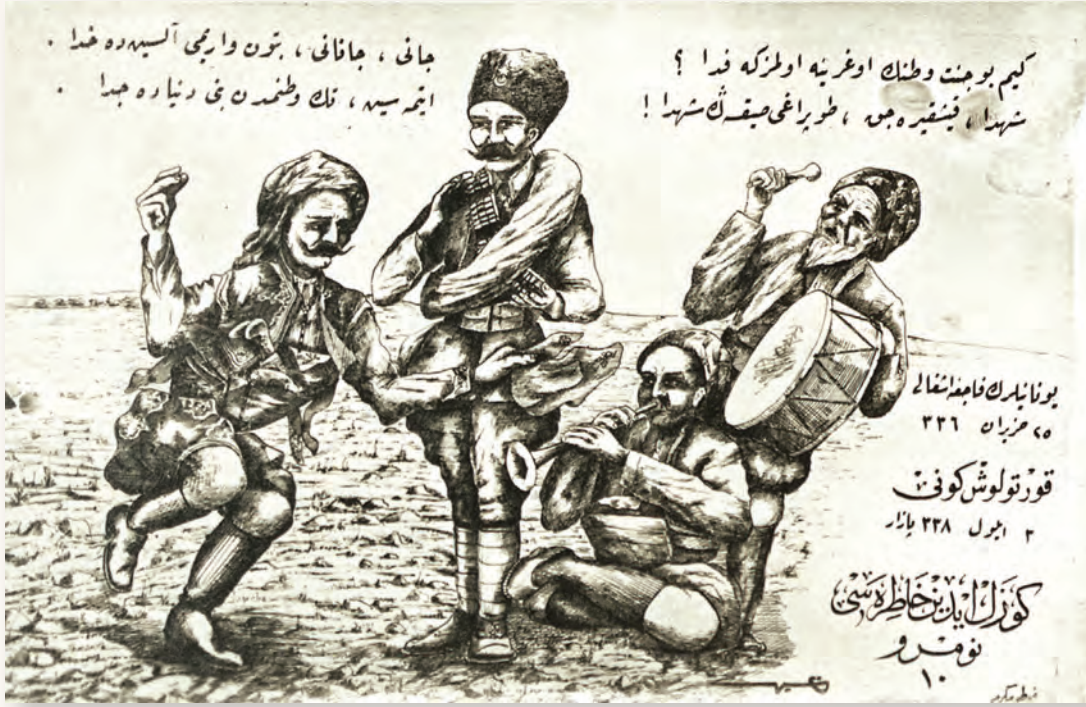 كيم بو جنت وطنك اوغرينه اولمزكه فدا ؟
شهدا ، فيشقيره جق ، طوپراغى صيقسه ڭ شهدا !
جانى ، جانانى ، بتون واريمى آلسين ده خدا .
ايتمه سين ، تك وطنمدن بنى دنياده جدا .
يونانيلرك فاجعه اشغالى
٢٥ حزيران ٣٣٦
قورتولوش كونى
٢ ايلول ٣٣٨ بازار
كوزل ايدين خاطره سى
نومرو
١٠